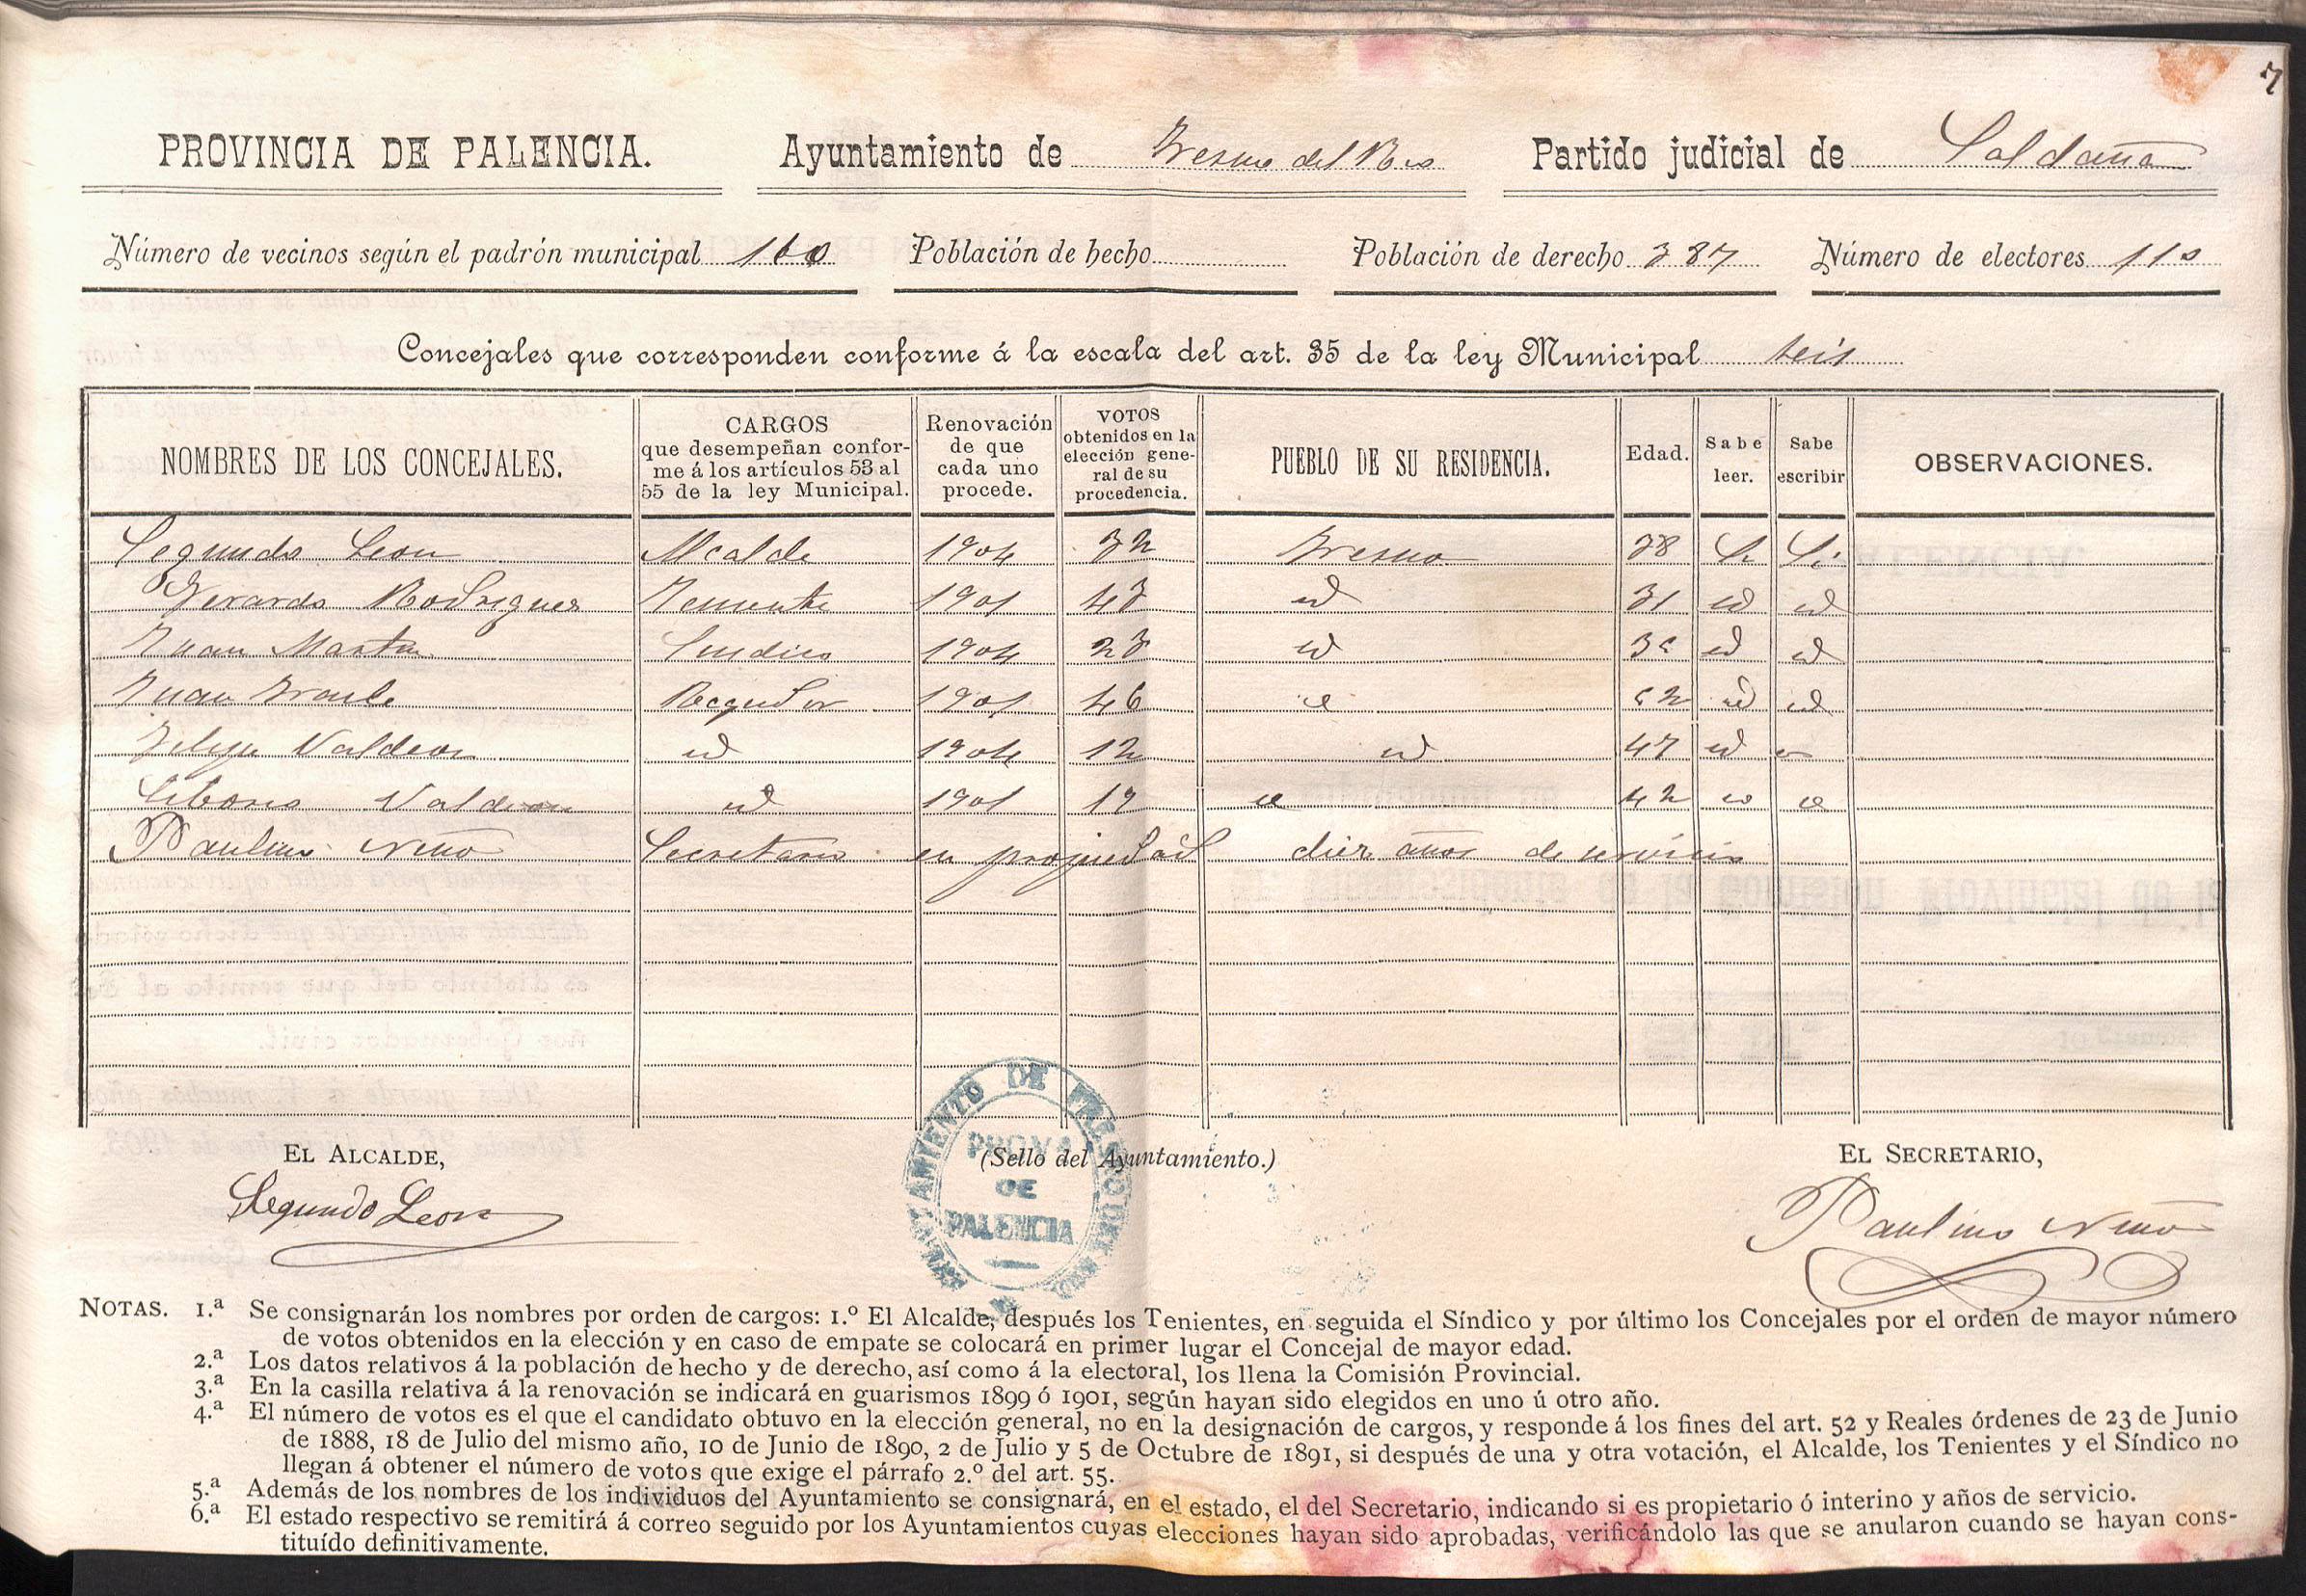 7
PROVINCIA DE PALENCIA. Ayuntamiento de Fresno del Rio Partido judicial de Saldaña
Número de vecinos según el padrón municipal 160 Población de hecho Población de derecho 387 Número de electores 110
Concejales que corresponden conforme á la escala del art. 35 de la ley Municipal seis
NOMBRES DE LOS CONCEJALES.
CARGOS
que desempeñan confor-
me á los artículos 53 al
55 de la ley Municipal.
Renovación
de que
cada uno
procede.
VOTOS
obtenidos en la
elección gene-
ral de su
procedencia.
PUEBLO DE SU RESIDENCIA.
Edad.
Sabe
leer.
Sabe
escribir
OBSERVACIONES.
Segundo Leon Alcalde 1904 32 Fresno 38 Si Si
Gerardo Rodriguez Teniente 1901 43 id 31 id id
Juan Martin Sindico 1904 23 id id id
Juan Regidor 1901 46 id id id
Felipe Valdeon id 1904 12 id 47 id id
Liborio Valdeon id 1901 id 42 id id
Paulino Niño Secretario en propiedad diez años de servicio
EL ALCALDE,
Segundo Leon
(Sello del Ayuntamiento.)
AYUNTAMIENTO DE FRESNO DEL RIO
PROVA
DE
PALENCIA
EL SECRETARIO,
Paulino Niño
NOTAS. 1.ª Se consignarán los nombres por orden de cargos: 1.º El Alcalde, después los Tenientes, en seguida el Síndico y por último los Concejales por el orden de mayor número
de votos obtenidos en la elección y en caso de empate se colocará en primer lugar el Concejal de mayor edad.
2.ª Los datos relativos á la población de hecho y de derecho, así como á la electoral, los llena la Comisión Provincial.
3.ª En la casilla relativa á la renovación se indicará en guarismos 1899 ó 1901, según hayan sido elegidos en uno ú otro año.
4.ª El número de votos es el que el candidato obtuvo en la elección general, no en la designación de cargos, y responde á los fines del art. 52 y Reales órdenes de 23 de Junio
de 1888, 18 de Julio del mismo año, 10 de Junio de 1890, 2 de Julio y 5 de Octubre de 1891, si después de una y otra votación, el Alcalde, los Tenientes y el Síndico no
llegan á obtener el número de votos que exige el párrafo 2.º del art. 55.
5.ª Además de los nombres de los individuos del Ayuntamiento se consignará, en el estado, el del Secretario, indicando si es propietario ó interino y años de servicio.
6.ª El estado respectivo se remitirá á correo seguido por los Ayuntamientos cuyas elecciones hayan sido aprobadas, verificándolo las que se anularon cuando se hayan cons-
tituído definitivamente.